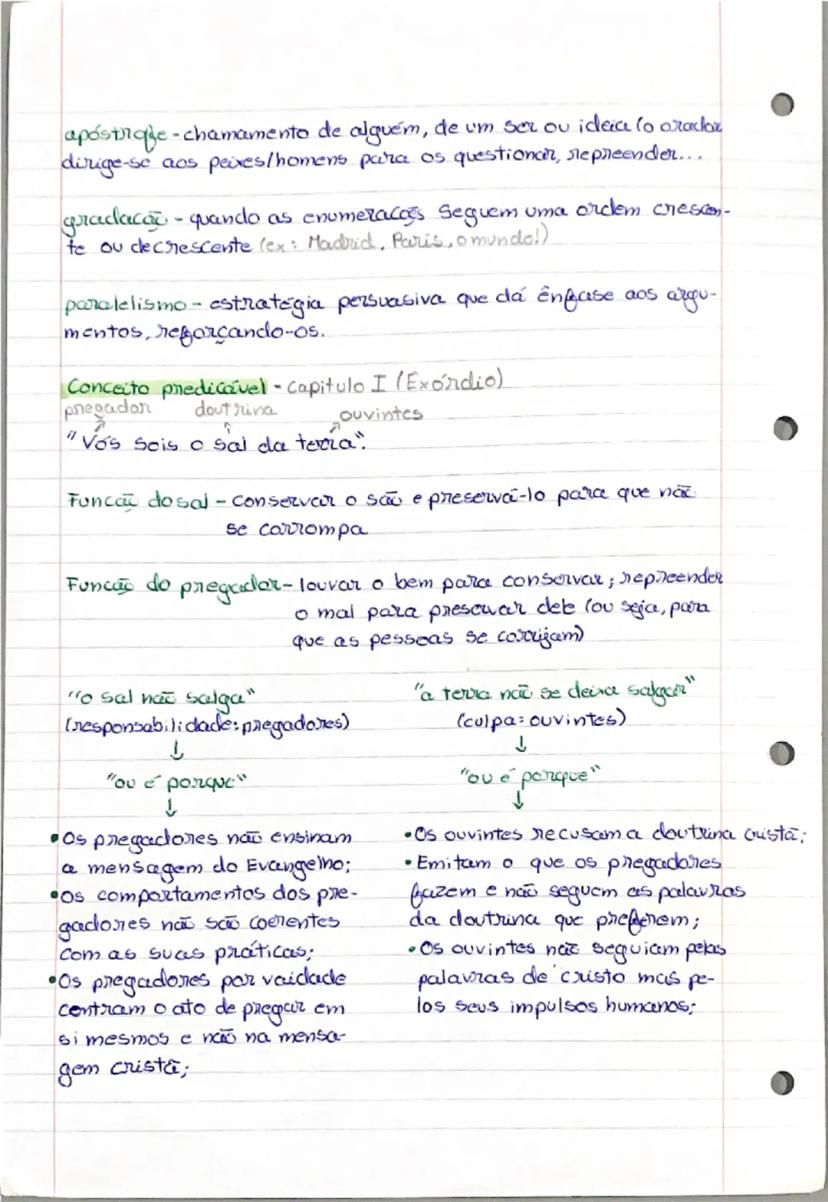 apóstrofe - chamamento de alguém, de um ser ou ideia (o orador
dirige-se aos peixes/homens para os questionar, repreender...
gradação - quando as enumerações seguem uma ordem crescen-
te ou decrescente (ex: Madrid, Paris, o mundo!)
paralelismo - estratégia persuasiva que dá ênfase aos argu-
mentos, reforçando-os.
Conceito predicável - capitulo I (Exórdio)
pregador doutrina ouvintes
"Vós sois o sal da terra".
Função do sal - conservar o são e preservá-lo para que não
se corrompa
Função do pregador - louvar o bem para conservar; repreender
o mal para preservar dele (ou seja, para
que as pessoas se corrijam)
"o sal não salga"
(responsabilidade: pregadores)
↓
"ou é porque"
↓
• Os pregadores não ensinam
a mensagem do Evangelho;
• Os comportamentos dos pre-
gadores não são coerentes
com as suas práticas;
• Os pregadores por vaidade
centram o ato de pregar em
si mesmos e não na mensa-
gem cristã;
"a terra não se deixa salgar"
(culpa: ouvintes)
↓
"ou é porque"
↓
• Os ouvintes recusam a doutrina cristã;
• Emitam o que os pregadores
fazem e não seguem as palavras
da doutrina que preferem;
• Os ouvintes não seguiam pelas
palavras de cristo mas pe-
los seus impulsos humanos;